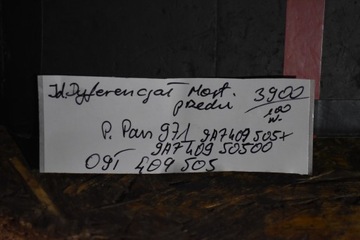 Id. Dyferencjał Most. 3900
przedni 100
w.
P. Pan 971 9A7409 505X
9A7409 50500
09I 409 505